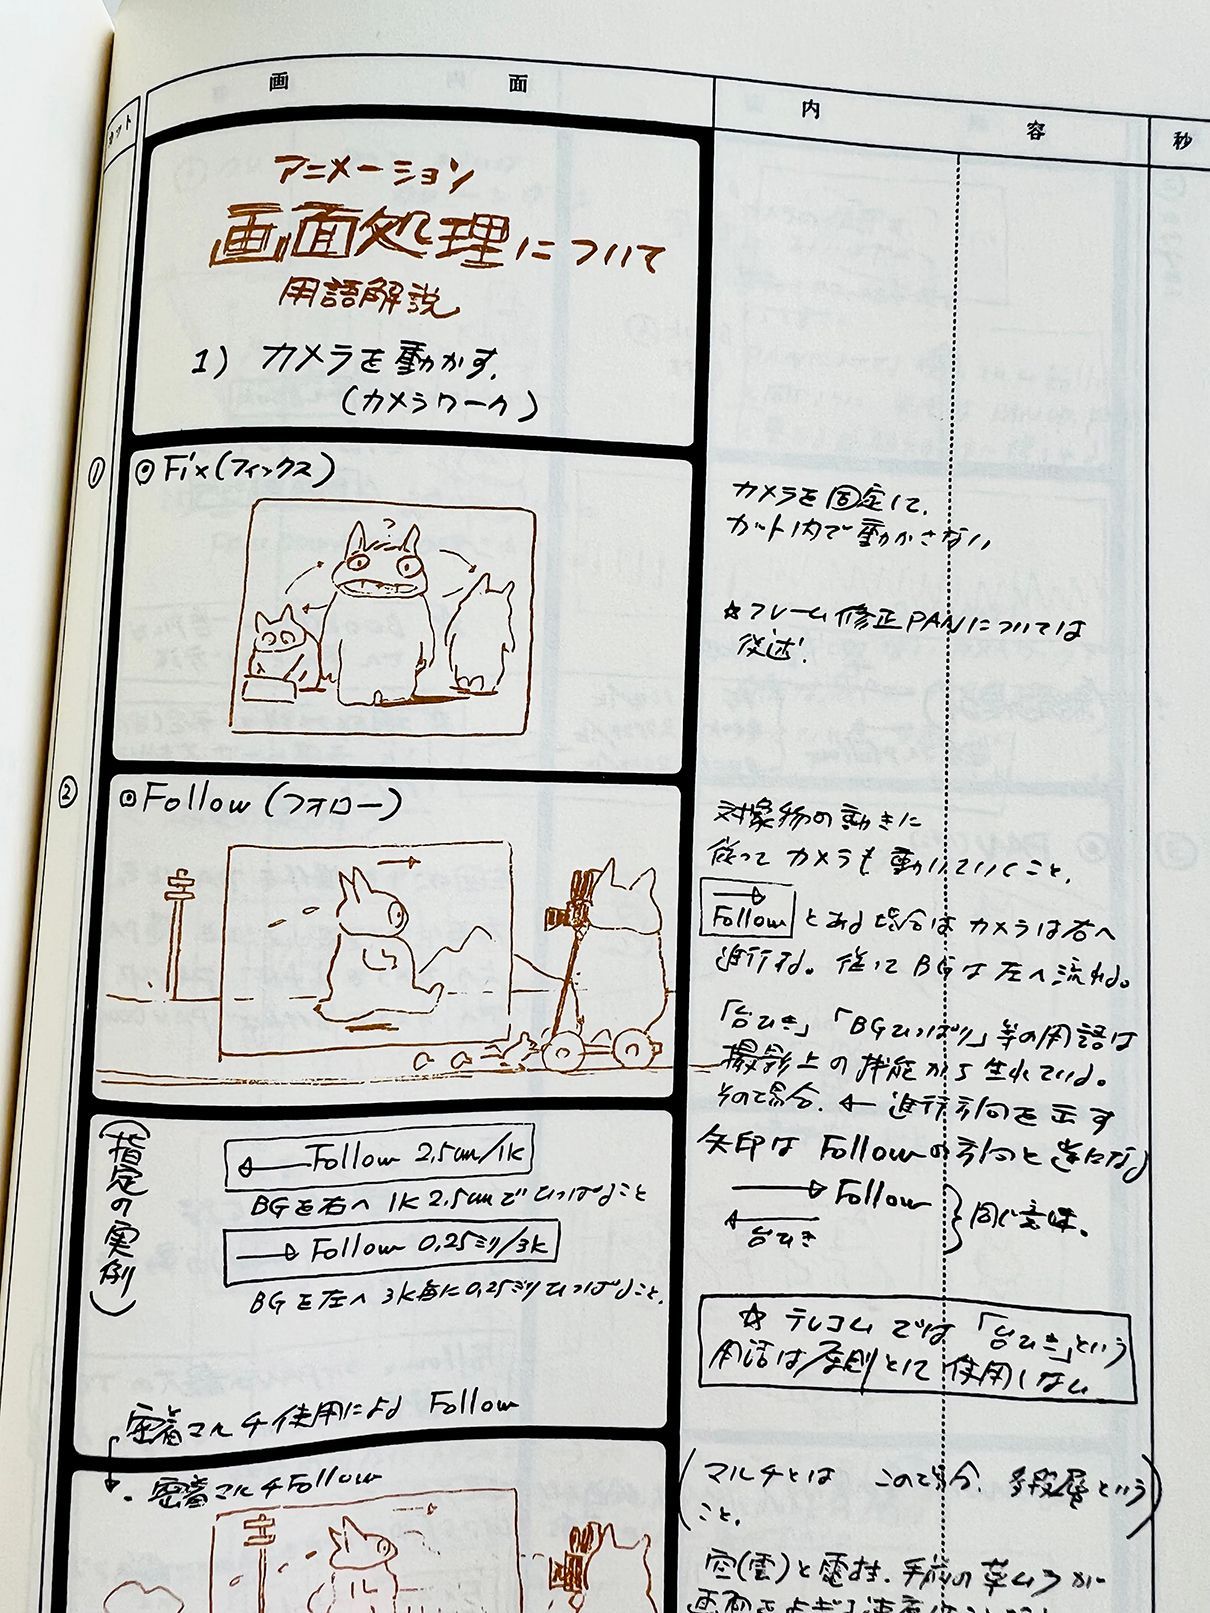 カット
画面
内容
秒
アニメーション
画面処理について
用語解説
1) カメラを動かす.
(カメラワーク)
①
◎Fix(フィックス)
カメラを固定して.
カット内で動かさない
☆フレーム修正PANについては
後述.
②
◎Follow(フォロー)
対象物の動きに
従ってカメラも動いていくこと.
→
Follow とある場合はカメラは右へ
進行する。従ってBGは左へ流れる。
「台ひき」「BGひっぱり」等の用語は
撮影上の機能から生れている。
その場合. ← 進行方向を示す
矢印は Followの方向と逆になる
→ Follow
← 台ひき
} 同じ意味.
(指定の実例)
← Follow 2.5cm/1k
BGを右へ 1k 2.5cmでひっぱること
→ Follow 0.25ミリ/3k
BGを左へ 3k毎に0.25ミリひっぱること.
☆ テレコムでは「台ひき」という
用語は原則として使用しない
密着マルチ使用による Follow
・密着マルチFollow
(マルチとは この場合. 多段層という
こと.)
空(雲)と電柱. 手前の草ムラが
画面をよぎる速度は